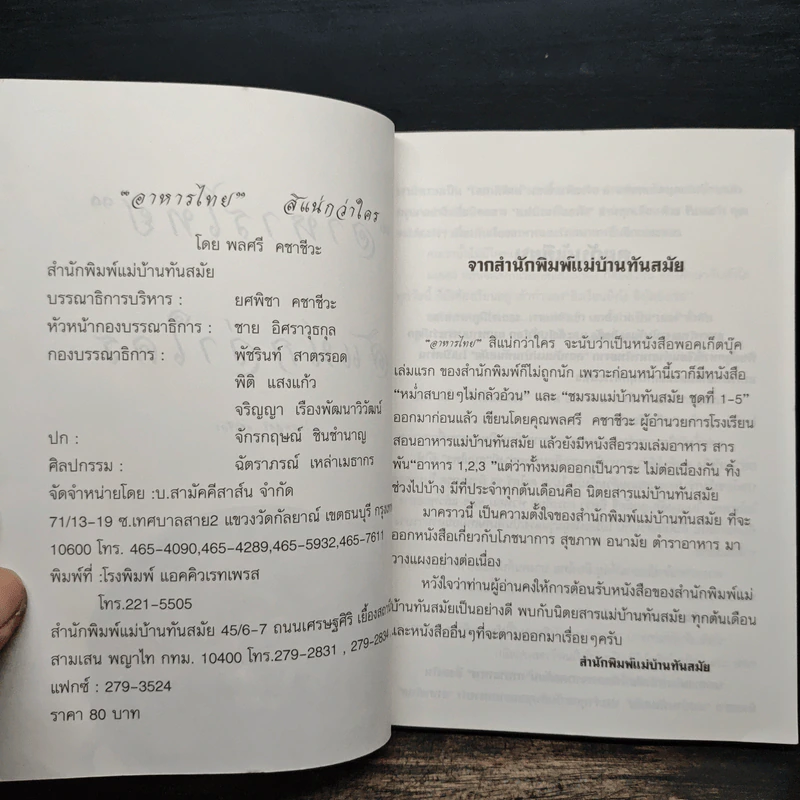 "อาหารไทย" สิแน่กว่าใคร
โดย พลศรี คชาชีวะ
สำนักพิมพ์แม่บ้านทันสมัย
บรรณาธิการบริหาร : ยศพิชา คชาชีวะ
หัวหน้ากองบรรณาธิการ : ชาย อิศราวุธกุล
กองบรรณาธิการ : พัชรินท์ สาตรรอด
พิติ แสงแก้ว
จริญญา เรืองพัฒนาวิวัฒน์
ปก : จักรกฤษณ์ ชินชำนาญ
ศิลปกรรม : ฉัตราภรณ์ เหล่าเมธากร
จัดจำหน่ายโดย :บ.สามัคคีสาส์น จำกัด
71/13-19 ซ.เทศบาลสาย2 แขวงวัดกัลยาณ์ เขตธนบุรี กรุงเทพ
10600 โทร. 465-4090,465-4289,465-5932,465-7611
พิมพ์ที่ :โรงพิมพ์ แอคคิวเรทเพรส
โทร.221-5505
สำนักพิมพ์แม่บ้านทันสมัย 45/6-7 ถนนเศรษฐศิริ เยื้องสถานี
สามเสน พญาไท กทม. 10400 โทร.279-2831 , 279-2834
แฟกซ์ : 279-3524
ราคา 80 บาท
จากสำนักพิมพ์แม่บ้านทันสมัย
"อาหารไทย" สิแน่กว่าใคร จะนับว่าเป็นหนังสือพอคเก็ตบุ๊ค
เล่มแรก ของสำนักพิมพ์ก็ไม่ถูกนัก เพราะก่อนหน้านี้เราก็มีหนังสือ
"หม่ำสบายๆไม่กลัวอ้วน" และ "ชมรมแม่บ้านทันสมัย ชุดที่ 1-5"
ออกมาก่อนแล้ว เขียนโดยคุณพลศรี คชาชีวะ ผู้อำนวยการโรงเรียน
สอนอาหารแม่บ้านทันสมัย แล้วยังมีหนังสือรวมเล่มอาหาร สาร
พัน"อาหาร 1,2,3 "แต่ว่าทั้งหมดออกเป็นวาระ ไม่ต่อเนื่องกัน ทิ้ง
ช่วงไปบ้าง มีที่ประจำทุกต้นเดือนคือ นิตยสารแม่บ้านทันสมัย
มาคราวนี้ เป็นความตั้งใจของสำนักพิมพ์แม่บ้านทันสมัย ที่จะ
ออกหนังสือเกี่ยวกับโภชนาการ สุขภาพ อนามัย ตำราอาหาร มา
วางแผงอย่างต่อเนื่อง
หวังใจว่าท่านผู้อ่านคงให้การต้อนรับหนังสือของสำนักพิมพ์แม่
บ้านทันสมัยเป็นอย่างดี พบกับนิตยสารแม่บ้านทันสมัย ทุกต้นเดือน
และหนังสืออื่นๆที่จะตามออกมาเรื่อยๆครับ
สำนักพิมพ์แม่บ้านทันสมัย